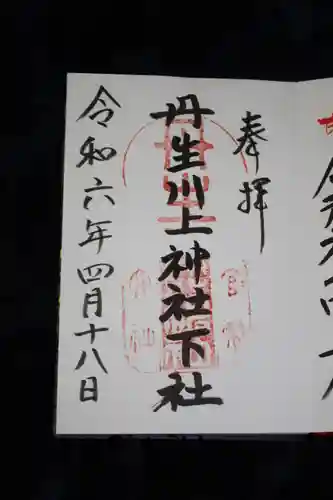 奉拝
丹生川上神社下社
令和六年四月十八日